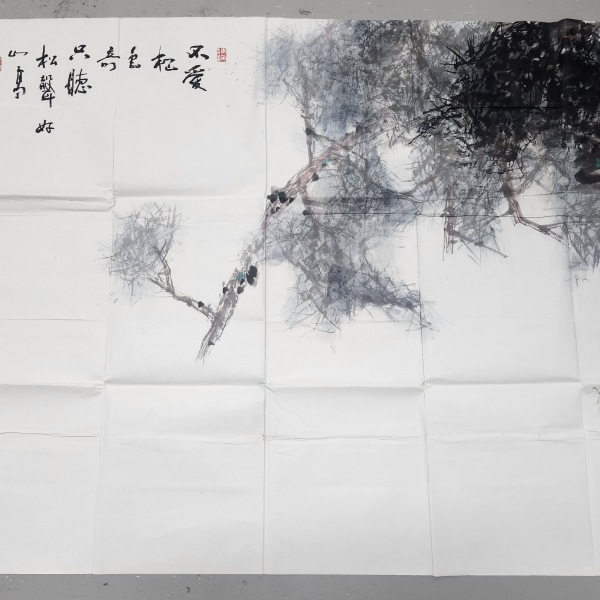 不愛
松
色
奇
只聽
松聲好
山亭